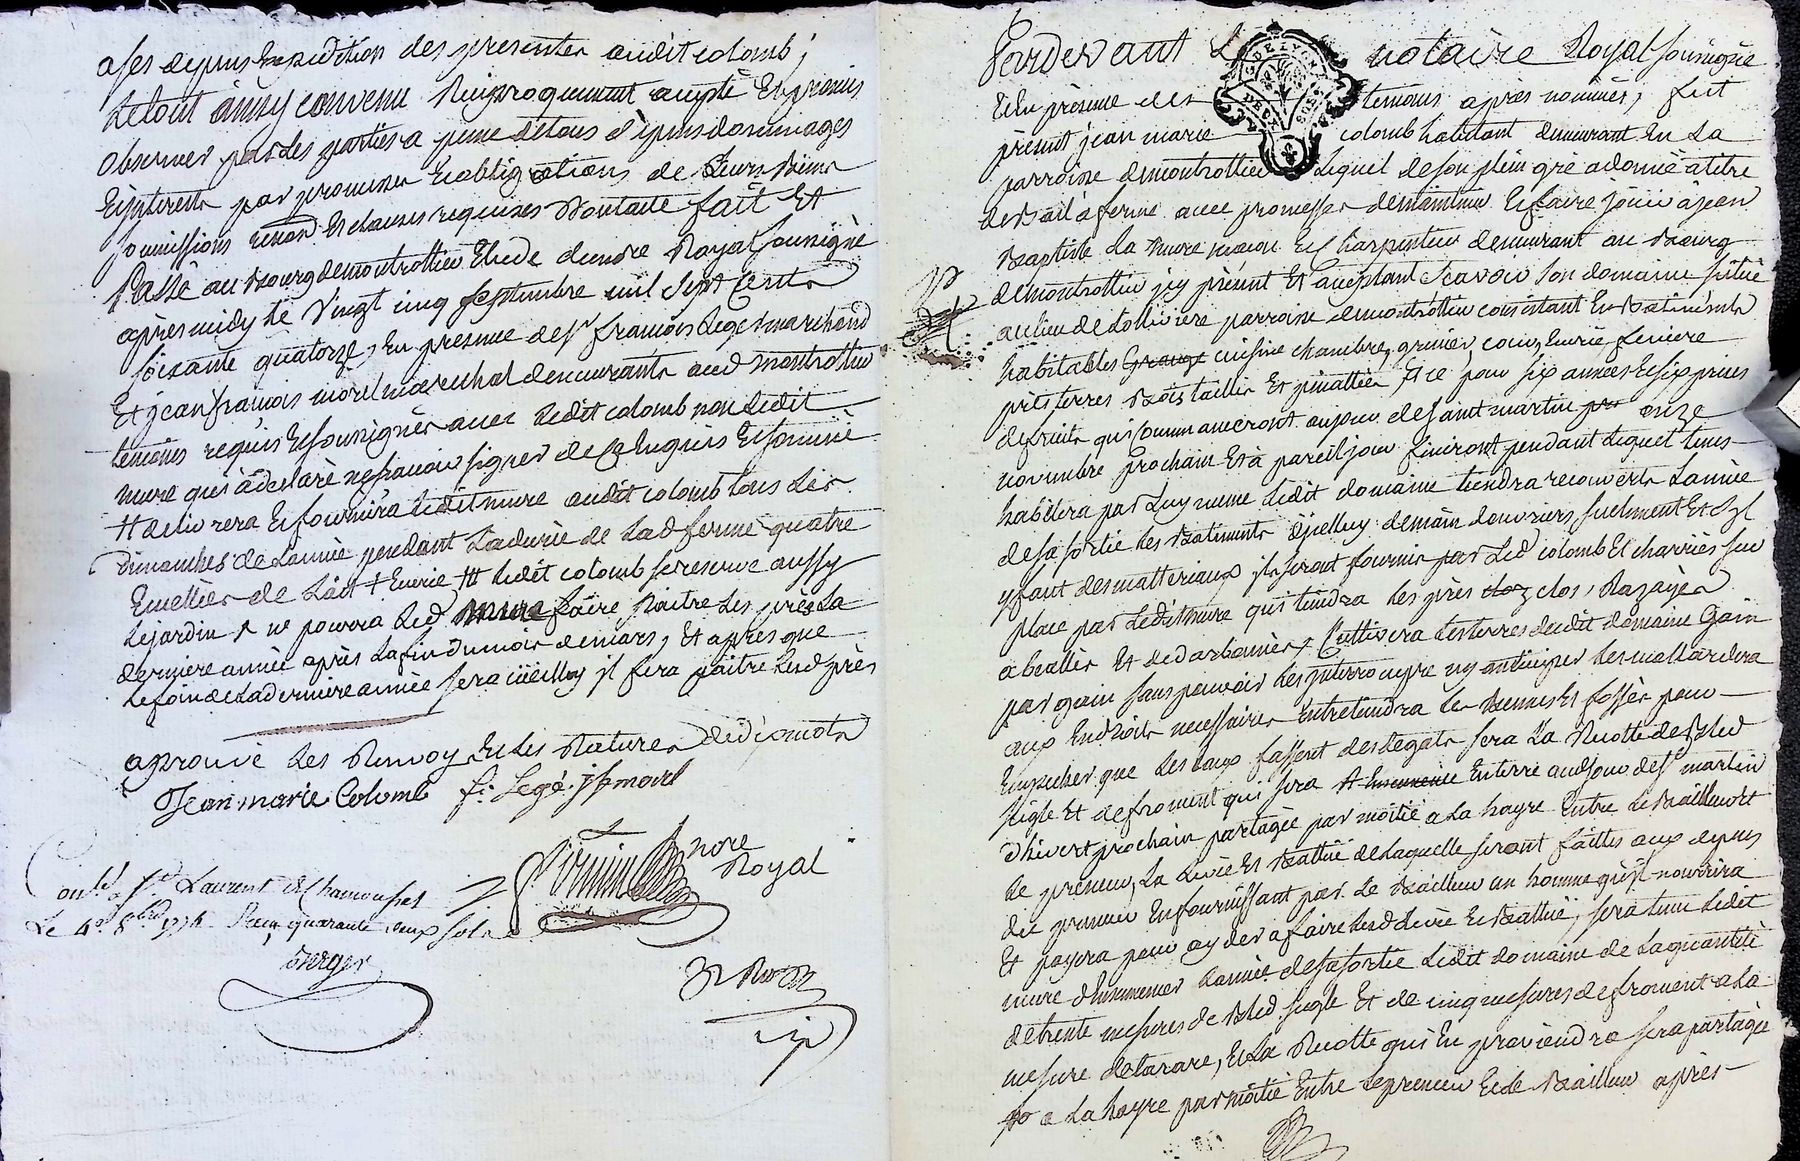 ases depens Expedition des presentes audit colomb;
Le tout ainsy convenu Reciproquement accepté Et promis
observer par les parties a peine de tous depens dommages
Et interets par promesses et obligations de Leurs Biens
soumissions renon. Et clauses requises Dont acte fait Et
Passé au Bourg de montrottier Etude du nore Royal soussigné
apres midy le Vingt cinq septembre mil sept Cents
soixante quatorze, En presence de Sr françois Leger marchand
Et jean françois morel marechal demeurants aud montrottier
temoins requis Et soussignés avec Ledit colomb non Ledit
mure qui à declaré ne sçavoir signer de ce Enquis Et sommé
# delivrera Et fournira Ledit mure audit colomb tous Les
Dimanches de L'année pendant La durée de Lad ferme quatre
Emellées de Lait + Ecurie ## Ledit colomb se reserve aussy
Le jardin ne pourra Led mure faire Paitre Les prés La
derniere année après La fin du mois de mars, Et apres que
Le foin de La derniere année sera cüeilly il fera paitre Lesd prés
aprouvé Les Renvoy Et Les Ratures de mots
Jean marie Colomb f. Legé. jf morel
nore
Royal
Conlé a St Laurent de Chamousset
Le 4e 8bre 1774 Reçu quarante deux sols
Berger
Pardevant L notaire Royal soussigné
Et En présence des temoins après nommés, fut
présent jean marie colomb habitant demeurant En La
parroisse de montrottier Lequel de son plein gré a donné a titre
de Bail à ferme avec promesses de maintenir Et faire jouir à jean
Baptiste La mure maçon Et Charpentier demeurant au Bourg
de montrottier icy présent Et acceptant Scavoir son domaine situé
au lieu de Lolliviere parroisse de montrottier consistant En Batiments
habitables Grange cuisine chambre, grenier, cour, Ecurie feniere
prés terres Bois taillis Et pinattée, Et ce pour six années Et six prises
de fruits qui commanceront au jour de saint martin onze
novembre prochain Et à pareil jour finiront pendant Lequel tems
habitera par Luy meme Ledit domaine tiendra recouverts L'année
de sa sortie Les Batiments d'ycelluy de main d'ouvriers seulement Et s'yl
y faut des matteriaux ils seront fournis par Led colomb Et charriés sur
place par Ledit mure qui tiendra Les prés clos, Razayés
abeallés Et dedarbonnés, Cultivera Les terres dudit domaine Gain
par gain sans pouvoir Les interrompre ny anticiper Les mallardera
aux Endroits necessaires Entretiendra Les Bennes Et fossés pour
Empecher que Les Eaux fassent des degats sera La Recolte de Bled
seigle Et de froment qui sera Enterré aud jour de St martin
d'hivert prochain partagée par moitié a La hayre Entre Le Bailleur Et
Le preneur, La Levée Et Battüe de Laquelle seront faittes aux depens
du preneur En fournissant par Le Bailleur un homme qu'yl nourrira
Et payera pour ayder a faire Lesd Levée Et Battüe, sera tenu Ledit
mure d'Ensemencer L'année de sa sortie Ledit domaine de La quantité
de trente mesures de Bled seigle Et de cinq mesures de froment a La
mesure de tarare, Et La Recolte qui En proviendra sera partagée
a La hayre par moitié Entre Le preneur Et Le Bailleur après